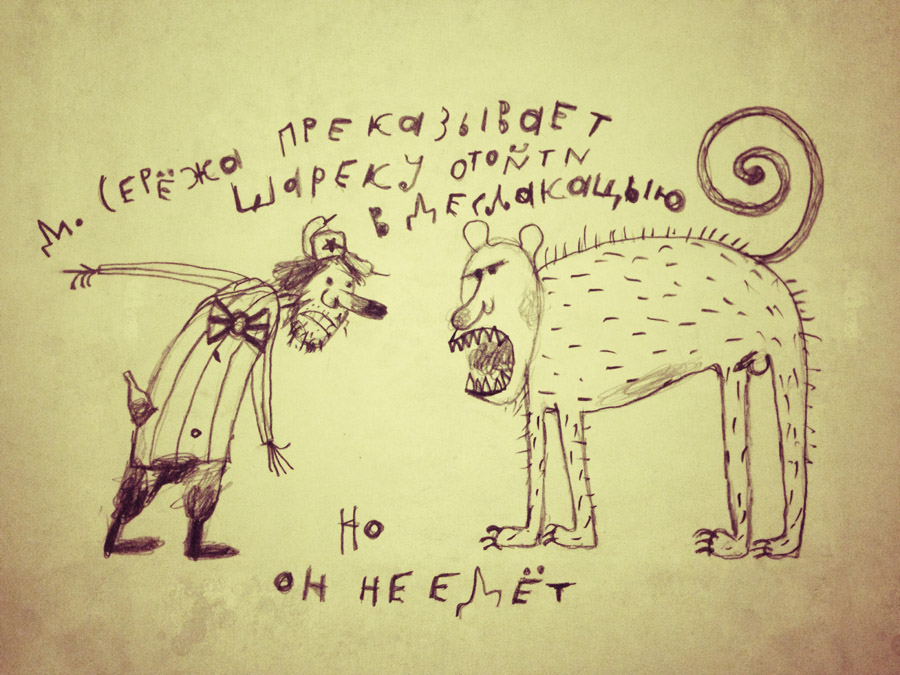 Д. СЕРЁЖА ПРЕКАЗЫВАЕТ
ШАРЕКУ ОТОЙТИ
В ДЕСЛАКАЦЫЮ
НО
ОН НЕ ЕДЁТ